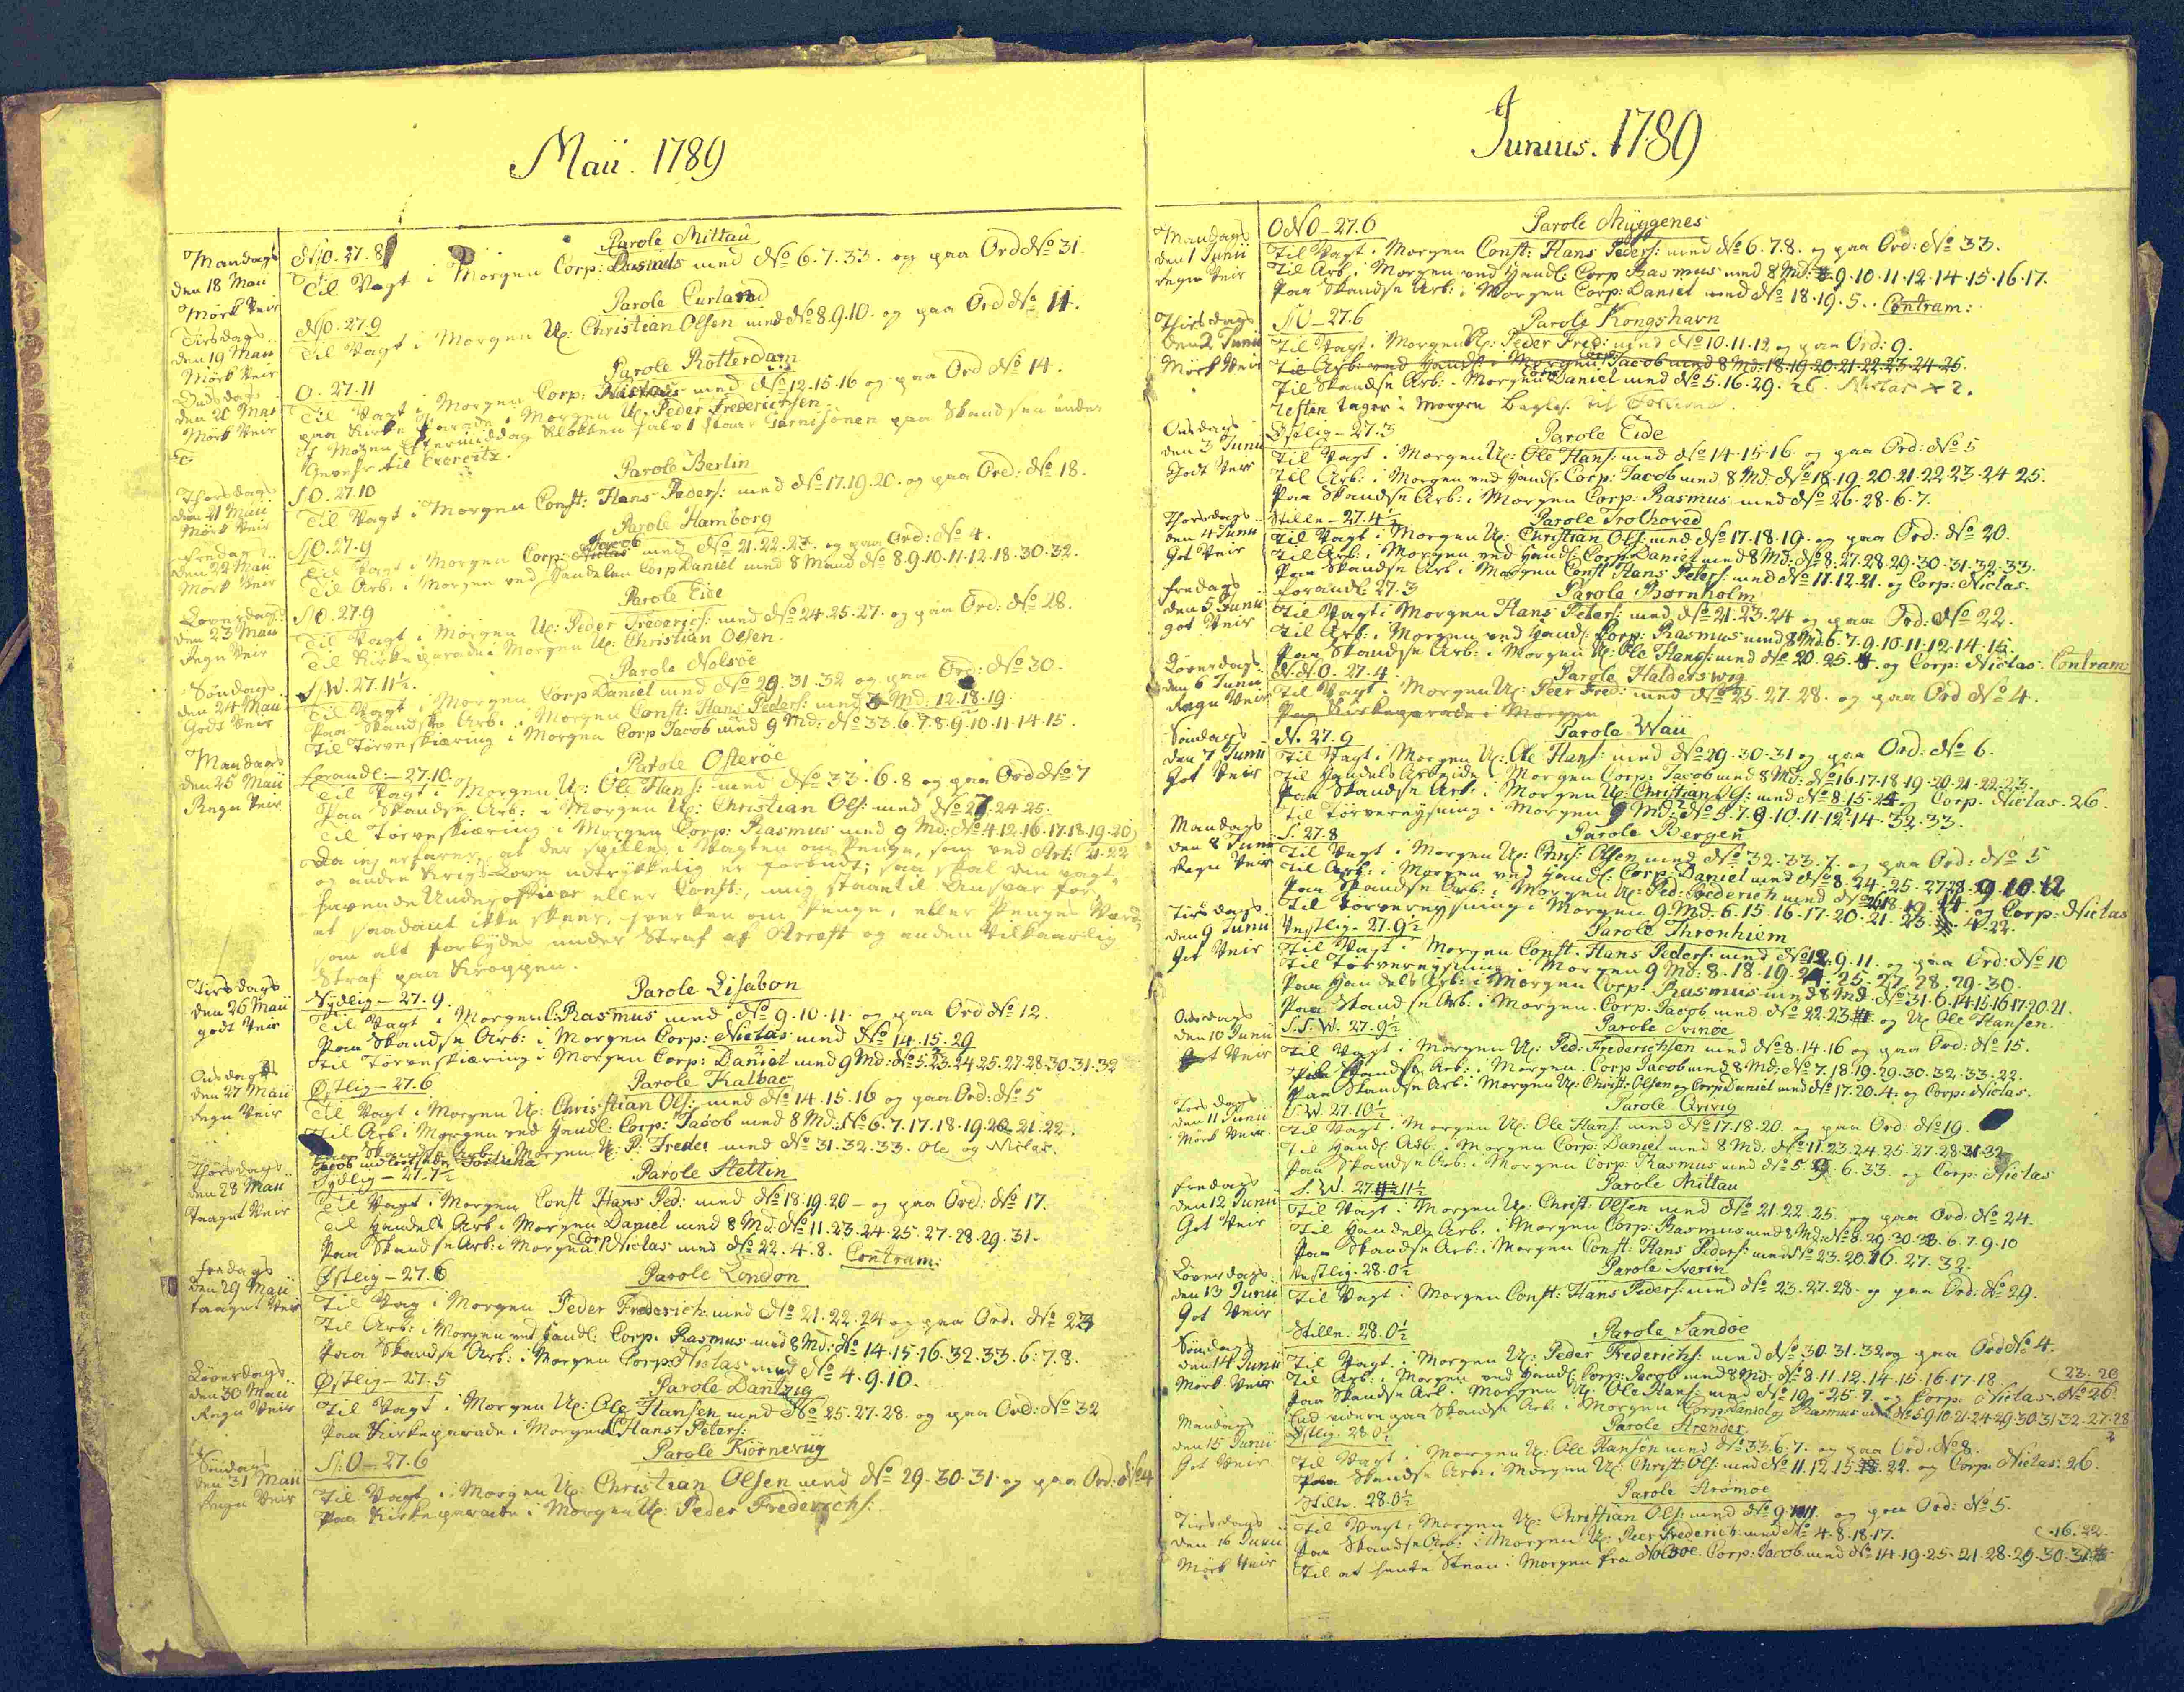 Maii. 1789
Mandags
den 18 Maii
Mörk Veir
NO. 27.8
Parole Mittau
Til Vagt i Morgen Corp: Rasmus med No 6.7.33. og paa Ord No 31.
Tirsdags
den 19 Maii
Mörk Veir
NO. 27.9
Parole Curland
Til Vagt i Morgen Uc: Christian Olsen med No 8.9.10. og paa Ord No 11.
Onsdags
den 20 Mai
Mörk Veir
O. 27.11
Parole Rotterdam
Til Vagt i Morgen Corp: Niclaus med No 12.15.16 og paa Ord No 14.
paa Kirke Parade i Morgen Uc. Peder Frederichsen
I Morgen Eftermiddag Klokken halv 1 staar Garnisonen paa Skandsen under
Gevehr til Exercitz.
Thorsdags
den 21 Maii
Mörk Veir
SO. 27.10
Parole Berlin
Til Vagt i Morgen Const: Hans Peders: med No 17.19.20. og paa Ord: No 18.
Fredags
den 22 Maii
Mörk Veir
SO. 27.9
Parole Hamborg
Til Vagt i Morgen Corp: Jacob med No 21.22.23. og paa Ord: No 4.
Til Arb. i Morgen ved Handelen Corp Daniel med 8 Mand No 8.9.10.11.12.18.30.32.
Löverdags
den 23 Maii
Regn Veir
SO. 27.9
Parole Eide
Til Vagt i Morgen Uc: Peder Frederichs: med No 24.25.27. og paa Ord: No 28.
Til Kirkeparade i Morgen Uc: Christian Olsen.
Söndags
den 24 Maii
Godt Veir
SW. 27.11½.
Parole Nolsöe
Til Vagt i Morgen Corp Daniel med No 29.31.32 og paa Ord: No 30.
Paa Skandse Arb. i Morgen Const: Hans Peders: med 3 Md: 12.18.19.
Til Törveskiæring i Morgen Corp Jacob med 9 Md: No 33.6.7.8.9.10.11.14.15.
Mandags
den 25 Maii
Regn Veir
forandl: – 27.10.
Parole Osteröe
Til Vagt i Morgen Uc: Ole Hans: med No 33.6.8 og paa Ord No 7
Paa Skandse Arb: i Morgen Uc: Christian Ols: med No 27.24.25.
Til Törveskiæring i Morgen Corp: Rasmus med 9 Md: No 4.12.16.17.18.19.20
Da jeg erfarer, at der spilles i Vagten om Penge, som ved Art: 21.22
og andre Krigs Love udtrykkelig er forbudt; saa skal den vagt-
havende Underofficer eller Const:, mig staae til Ansvar for,
at saadant ikke skeer, hverken om Penge, eller Penges Værd,
som alt forbydes under Straf af Arrest og anden Vilkaarlig
Straf paa Kroppen.
Tirsdags
den 26 Maii
godt Veir
Sydlig – 27.9.
Parole Lisabon
Til Vagt i Morgen C: Rasmus med No 9.10.11. og paa Ord No 12.
Paa Skandse Arb: i Morgen Corp: Niclas med No 14.15.29
Til Törveskiæring i Morgen Corp: Daniel med 9 Md: No 5.23.24.25.27.28.30.31.32
Onsdags
den 27 Maii
Regn Veir
Östlig – 27.6
Parole Kalbac
Til Vagt i Morgen Uc: Christian Ols: med No 14.15.16 og paa Ord: No 5
Til Arb i Morgen ved Handl: Corp: Jacob med 8 Md: No 6.7.17.18.19.20.21.22.
Paa Skandse Arb i Morgen Uc: P. Freder med No 31.32.33. Ole og Niclas.
Thorsdags
den 28 Maii
Taaget Veir
Sydlig – 27.7½
Parole Stettin
Til Vagt i Morgen Const Hans Ped: med No 18.19.20 – og paa Ord: No 17.
Til Handels Arb i Morgen Daniel med 8 Md. No 11.23.24.25.27.28.29.31.
Paa Skandse Arb: i Morgen Corp Niclas med No 22.4.8. Contram:
Fredags
den 29 Maii
taaget Veir
Östlig – 27.6
Parole London
Til Vag i Morgen Peder Frederich: med No 21.22.24 og paa Ord. No 23
Til Arb: i Morgen ved Handl: Corp. Rasmus med 8 Md: No 14.15.16.32.33.6.7.8.
Paa Skandse Arb: i Morgen Corp: Niclas med No 4.9.10.
Löverdags
den 30 Maii
Regn Veir
Östlig – 27.5
Parole Dantzig
Til Vagt i Morgen Uc: Ole Hansen med No 25.27.28. og paa Ord: No 32
Paa Kirkeparade i Morgen C Hans Peters:
Söndags
den 31 Maii
Regn Veir
S:O – 27.6
Parole Kiörneviig
Til Vagt i Morgen Uc: Christian Olsen med No 29.30.31. og paa Ord: No 4
Paa Kirkeparade i Morgen Uc: Peder Frederichs:
Junius. 1789
Mandags
den 1 Junii
Regn Veir
ONO – 27.6
Parole Myggenes
Til Vagt i Morgen Const: Hans Peders: med No 6.7.8. og paa Ord: No 33.
Til Arb i Morgen ved Handl: Corp Rasmus med 8 Md: 9.10.11.12.14.15.16.17.
Paa Skandse Arb: i Morgen Corp: Daniel med No 18.19.5. Contram:
Thirsdags
den 2 Junii
Mörk Veir
SO – 27.6
Parole Kongshavn
Til Vagt i Morgen Uc: Peder Fred: med No 10.11.12 og paa Ord: 9.
Til Arb: ved Handl: i Morgen Corp Jacob med 8 Md: 18.19.20.21.22.23.24.25.
Til Skandse Arb: i Morgen Corp Daniel med No 5.16.29.
Resten tager i Morgen
Onsdags
den 3 Junii
Godt Veir
Östlig – 27.3
Parole Eide
Til Vagt i Morgen Uc: Ole Hans: med No 14.15.16. og paa Ord: No 5
Til Arb: i Morgen ved Handl: Corp: Jacob med 8 Md: No 18.19.20.21.22.23.24.25.
Paa Skandse Arb: i Morgen Corp: Rasmus med No 26.28.6.7.
Thorsdags
den 4 Junii
Got Veir
Stille – 27.4½
Parole Trolhoved
Til Vagt i Morgen Uc: Christian Ols: med No 17.18.19. og paa Ord: No 20.
Til Arb: i Morgen ved Handl: Corp: Daniel med 8 Md: No 8.27.28.29.30.31.32.33.
Paa Skandse Arb i Morgen Const Hans Peters: med No 11.12.21. og Corp: Niclas.
Fredags
den 5 Junii
got Veir
forandl: 27.3
Parole Bornholm
Til Vagt i Morgen Hans Peters: med No 21.23.24 og paa Ord: No 22.
Til Arb: i Morgen ved Handl: Corp: Rasmus med 8 Md. 6.7.9.10.11.12.14.15.
Paa Skandse Arb: i Morgen Uc: Ole Hans: med No 20.25. og Corp: Niclas. Contram:
Löverdags
den 6 Junii
Regn Veir
NNO. 27.4
Parole Halderswig
Til Vagt i Morgen Uc: Peer Fred: med No 25.27.28. og paa Ord No 4.
Paa Kirkeparade i Morgen
Söndags
den 7 Junii
Got Veir
N. 27.9
Parole Waii
Til Vagt i Morgen Uc: Ole Hans: med No 29.30.31 og paa Ord: No 6.
Til Handels Arbeide i Morgen Corp: Jacob med 8 Md: No 16.17.18.19.20.21.22.23.
Paa Skandse Arb: i Morgen Uc: Christian Ols: med No 8.15.24 Corp. Niclas. 26.
Til Törvereysning i Morgen 9 Md: No 5.7.9.10.11.12.14.32.33.
Mandags
den 8 Junii
Regn Veir
S. 27.8
Parole Bergen
Til Vagt i Morgen Uc: Chris: Olsen med No 32.33.7. og paa Ord: No 5
Til Arb: i Morgen ved Handl: Corp: Daniel med No 8.24.25.27.28.9.10.12
Paa Skandse Arb: i Morgen Uc: Ped: Frederich med No 26.18.19.14. og Corp: Niclas
Til Törvereysning i Morgen 9 Md. 6.15.16.17.20.21.23. 4.22.
Tirsdags
den 9 Junii
Got Veir
Vestlig. 27.9½
Parole Thronhiem
Til Vagt i Morgen Const. Hans Peders: med No 12.9.11. og paa Ord: No 10
Til Törvereysning i Morgen 9 Md: 8.18.19.24.25.27.28.29.30.
Paa Handels Arb: i Morgen Corp: Rasmus med 8 Md. No 31.6.14.15.16.17.20.21.
Paa Skandse Arb: i Morgen. Corp. Jacob med No 22.23. og Uc Ole Hansen.
Onsdags
den 10 Junii
Got Veir
S.S.W. 27.9½
Parole Svinöe
Til Vagt i Morgen Uc: Ped: Frederichsen med No 8.14.16 og paa Ord: No 15.
Paa Handels Arb: i Morgen. Corp Jacob med 8 Md: No 7.18.19.29.30.32.33.22.
Paa Skandse Arb i Morgen Uc: Christ: Olsen og Corp Daniel med No 17.20.4. og Corp: Niclas.
Torsdags
den 11 Junii
Mörk Veir
S.W. 27.10½
Parole Qvivig
Til Vagt i Morgen Uc: Ole Hans: med No 17.18.20. og paa Ord: No 19.
Til Handl Arb: i Morgen Corp: Daniel med 8 Md. No 11.23.24.25.27.28.31.32
Paa Skandse Arb: i Morgen Corp: Rasmus med No 5.9.6.33. og Corp: Niclas
Fredags
den 12 Junii
Got Veir
S.W. 27.11½
Parole Mittau
Til Vagt i Morgen Uc: Christ: Olsen med No 21.22.25. og paa Ord: No 24.
Til Handels Arb. i Morgen Corp: Rasmus med 8 Md: No 8.29.30.33.6.7.9.10
Paa Skandse Arb: i Morgen Const: Hans Peders: med No 23.20.16.27.32.
Löverdags
den 13 Junii
Got Veir
Vestlig. 28.0½
Parole Nerin
Til Vagt i Morgen Const: Hans Peders: med No 23.27.28. og paa Ord: No 29.
Söndags
den 14 Junii
Mörk Veir
Stille. 28.0½
Parole Sandöe
Til Vagt i Morgen Uc: Peder Frederichs: med No 30.31.32 og paa Ord No 4.
Til Arb: i Morgen ved Handl: Corp: Jacob med 8 Md: No 8.11.12.14.15.16.17.18.
Paa Skandse Arb: i Morgen Uc: Ole Hans: med No 19.25.7. og Corp: Niclas. No 26
End videre paa Skandse Arb i Morgen Corp: Daniel og Rasmus med No 5.9.10.21.24.29.30.31.32.27.28
Mandags
den 15 Junii
Got Veir
Östlig. 28.0½
Parole Strender
Til Vagt i Morgen Uc: Ole Hansen med No 33.6.7. og paa Ord. No 8.
Paa Skandse Arb: i Morgen Uc: Christ: Ols: med No 11.12.15. 22. og Corp: Niclas: 26.
Tirsdags
den 16 Junii
Mörk Veir
Stille. 28.0½
Parole Strömöe
Til Vagt i Morgen Uc: Christian Ols: med No 9.10.11. og paa Ord: No 5.
Paa Skandse Arb: i Morgen Uc: Peer Frederich: med No 4.8.18.17.
Til at hente Steen i Morgen fra Nolsöe. Corp: Jacob med No 14.19.25.21.28.29.30.31. .16.22.